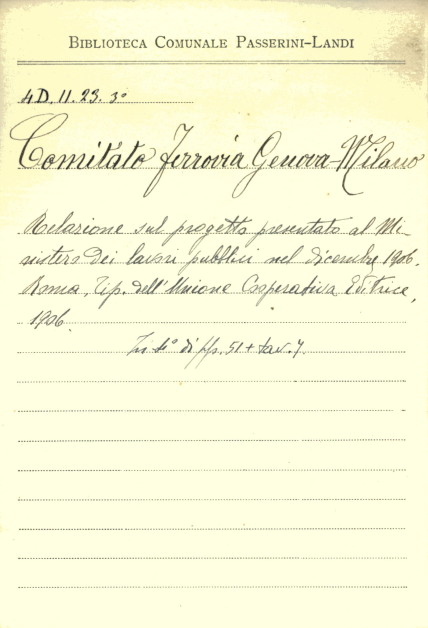 BIBLIOTECA COMUNALE PASSERINI-LANDI
4D. 11. 23. 3°
Comitato Ferrovia Genova-Milano
Relazione sul progetto presentato al Mi-
nistero dei lavori pubblici nel dicembre 1906.
Roma, Tip. dell'Unione Cooperativa Editrice,
1906.
In 4° di pp. 51 + tav. 7.